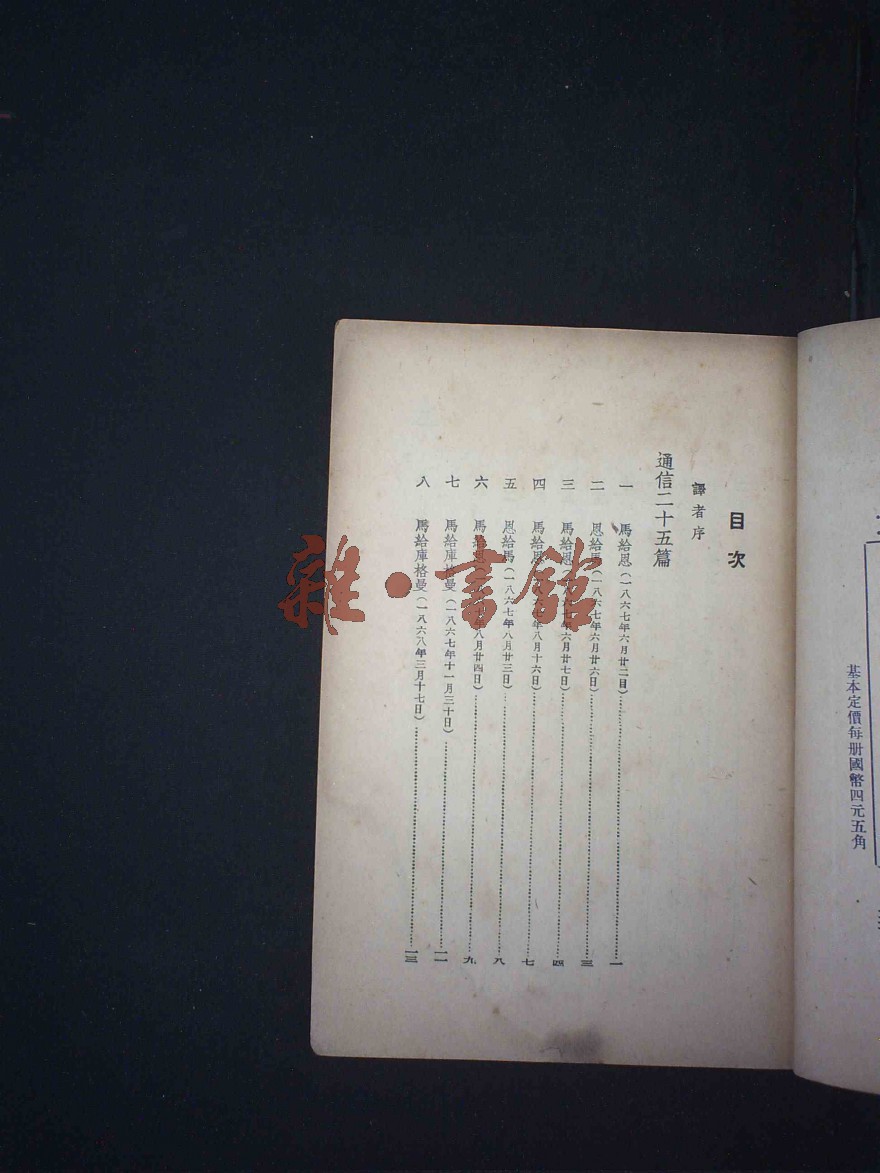 基本定價每册國幣四元五角
目次
譯者序
通信二十五篇
一 馬給恩(一八六七年六月廿二日)⋯⋯一
二 恩給馬(一八六七年六月廿六日)⋯⋯三
三 馬給恩(一八六七年六月廿七日)⋯⋯四
四 馬給恩(一八六七年八月十六日)⋯⋯七
五 恩給馬(一八六七年八月廿三日)⋯⋯八
六 馬給恩(一八六七年八月廿四日)⋯⋯九
七 馬給庫格曼(一八六七年十一月三十日)⋯⋯一一
八 馬給庫格曼(一八六八年三月十七日)⋯⋯一三
雜·書館